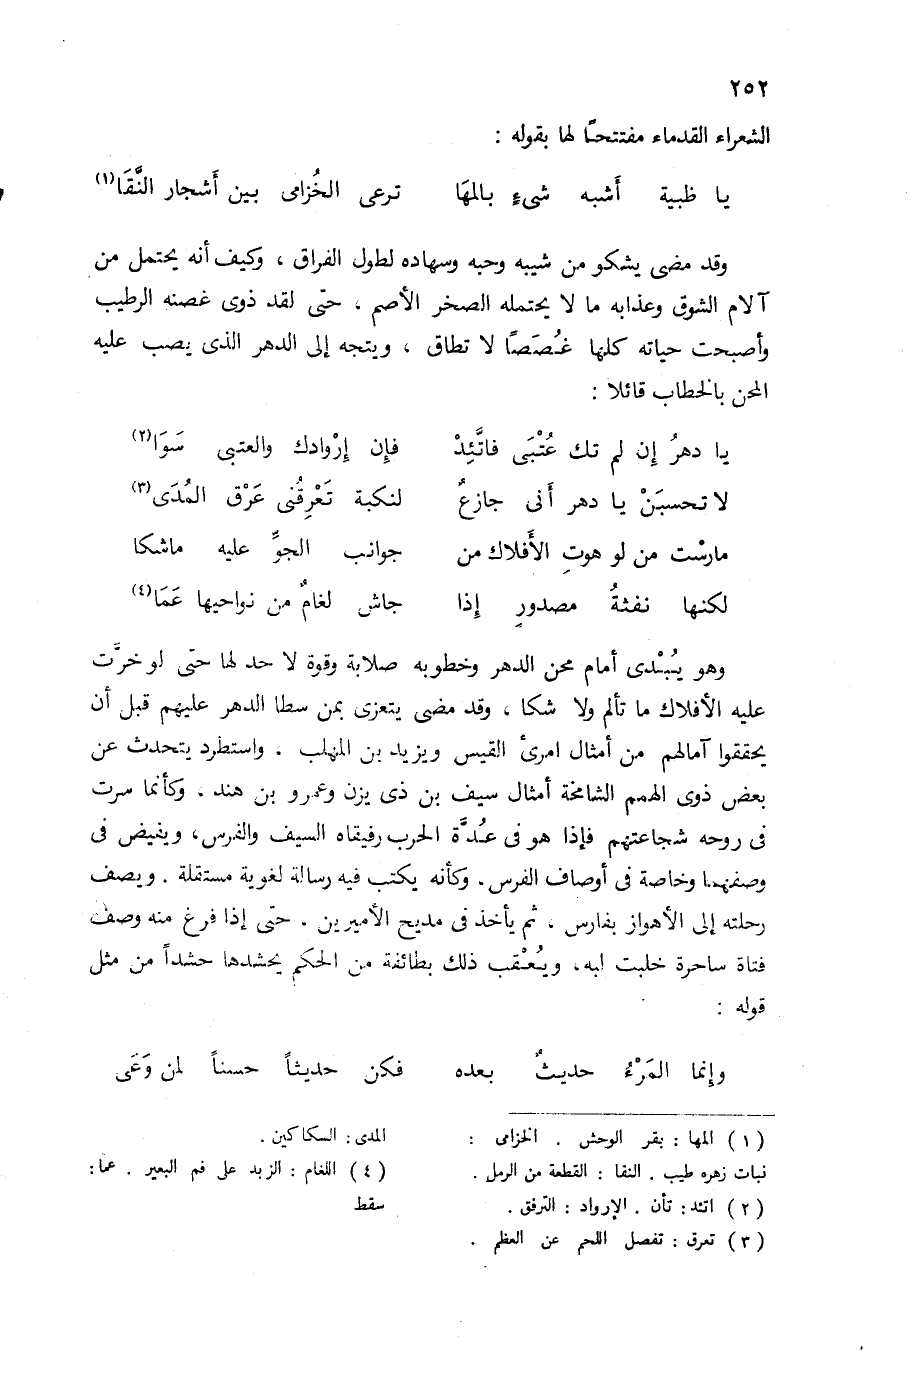 ٢٥٢
الشعراء القدماء مفتتحًا لها بقوله :
يا ظبية أشبه شىءٍ بالمهَا ترعى الخُزامى بين أشجار النَّقَا(١)
وقد مضى يشكو من شيبه وحبه وسهاده لطول الفراق ، وكيف أنه يحتمل من
آلام الشوق وعذابه ما لا يحتمله الصخر الأصم ، حتى لقد ذوى غصنه الرطيب
وأصبحت حياته كلها غُصَصًا لا تطاق ، ويتجه إلى الدهر الذى يصب عليه
المحن بالخطاب قائلا :
يا دهرُ إن لم تك عُتْبَى فاتَّئِدْ فإن إرْوادك والعتبى سَوَا(٢)
لا تحسبَنْ يا دهر أنى جازعٌ لنكبة تَعْرِقُنى عَرْق المُدَى(٣)
مارسْت من لو هوتِ الأفلاك من جوانب الجوِّ عليه ماشكا
لكنها نفثةُ مصدورٍ إذا جاش لغامٌ من نواحيها عَمَا(٤)
وهو يُبْدى أمام محن الدهر وخطوبه صلابة وقوة لا حد لها حتى لو خرَّت
عليه الأفلاك ما تألم ولا شكا ، وقد مضى يتعزى بمن سطا الدهر عليهم قبل أن
يحققوا آمالهم من أمثال امرئ القيس ويزيد بن المهلب . واستطرد يتحدث عن
بعض ذوى الهمم الشامخة أمثال سيف بن ذى يزن وعمرو بن هند ، وكأنما سرت
فى روحه شجاعتهم فإذا هو فى عُدَّة الحرب رفيقاه السيف والفرس، ويفيض فى
وصفهما وخاصة فى أوصاف الفرس. وكأنه يكتب فيه رسالة لغوية مستقلة . ويصف
رحلته إلى الأهواز بفارس ، ثم يأخذ فى مديح الأميرين . حتى إذا فرغ منه وصف
فتاة ساحرة خلبت لبه، ويُعْقب ذلك بطائفة من الحكم يحشدها حشداً من مثل
قوله :
وإنما المَرْءُ حديثٌ بعده فكن حديثاً حسناً لمن وَعَى
(١) المها : بقر الوحش . الخزامى :
نبات زهره طيب . النقا : القطعة من الرمل .
(٢) اتئد : تأن . الإرواد : الترفق .
(٣) تعرق : تفصل اللحم عن العظم .
المدى : السكاكين .
(٤) اللغام : الزبد على فم البعير . عما :
سقط